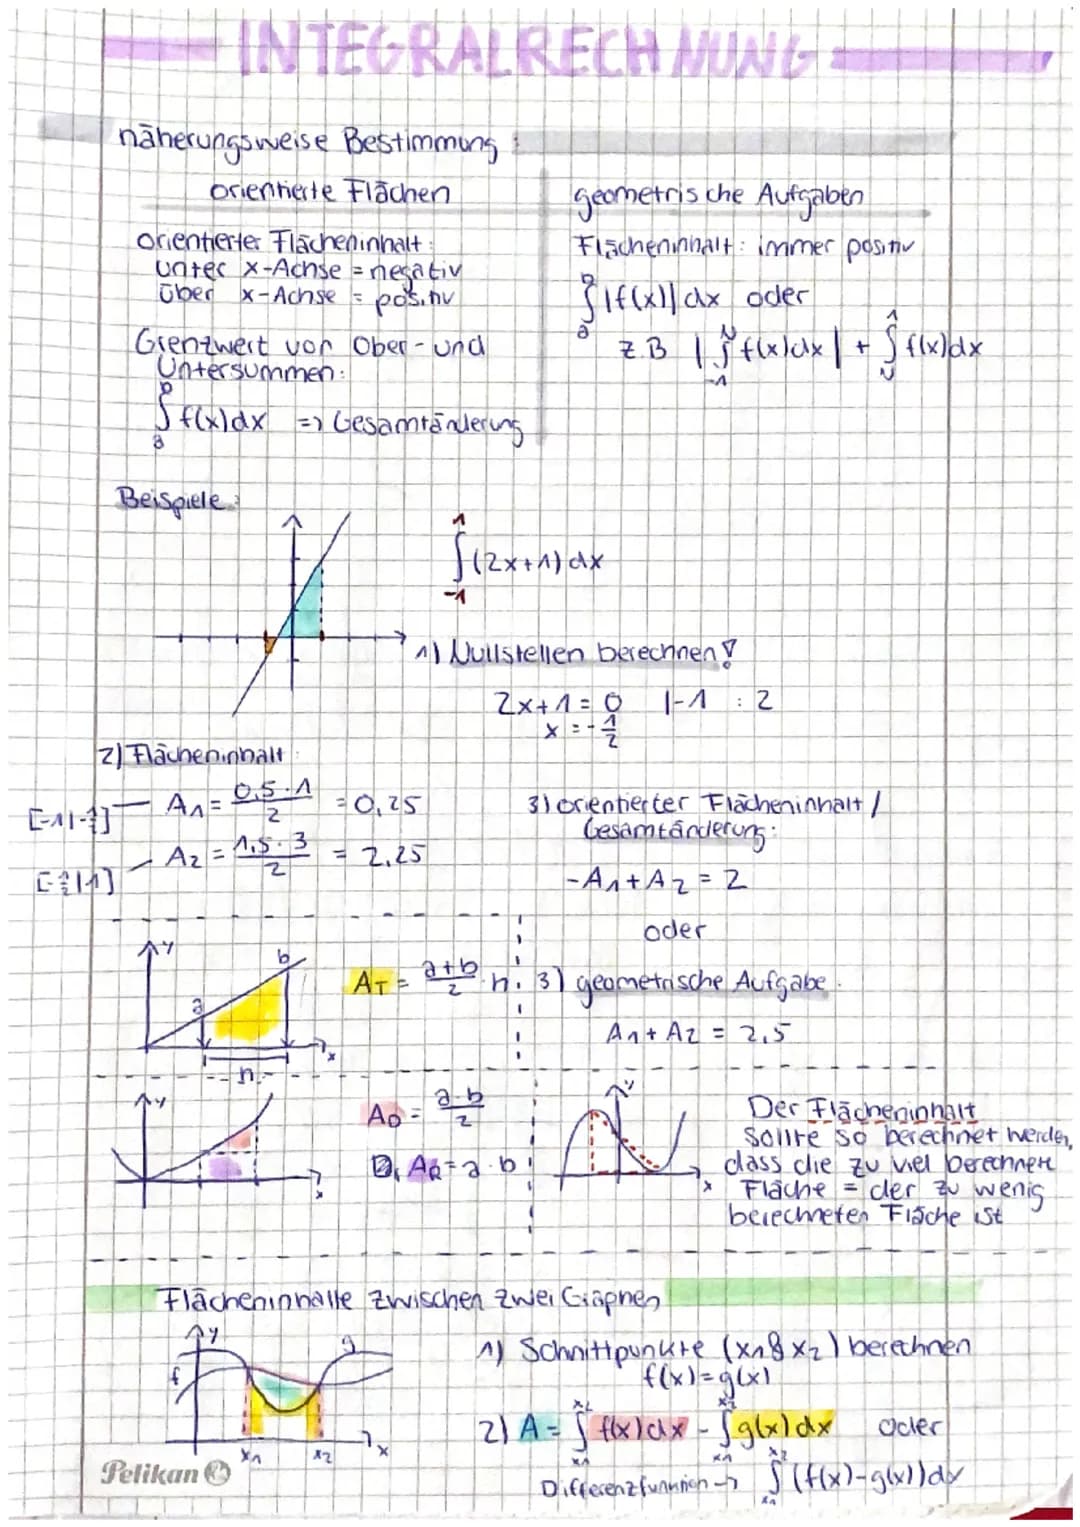 INTEGRALRECHNUNG
näherungsweise Bestimmung :
orientierte Flächen
orientierter Flächeninhalt :
unter x-Achse = negativ
über x-Achse = positiv
Grenzwert von Ober- und
Untersummen:
b
∫ f(x)dx => Gesamtänderung
a
geometrische Aufgaben
Flächeninhalt: immer positiv
b
∫ |f(x)| dx oder
a
z.B | ∫ f(x)dx | + ∫ f(x)dx
-1
Beispiele :
1
∫(2x+1) dx
-1
1) Nullstellen berechnen!
2x+1 = 0 |-1 :2
x = -1/2
2) Flächeninhalt :
[-1|-1/2] A1 = 0,5·1/2 = 0,25
[-1/2|1] A2 = 1,5·3/2 = 2,25
3) orientierter Flächeninhalt /
Gesamtänderung:
-A1 + A2 = 2
oder
3) geometrische Aufgabe
A1 + A2 = 2,5
y
a
b
h
x
AT = a+b/2 · h
y
x
AD = a·b/2
AR = a · b
y
x
Der Flächeninhalt
sollte so berechnet werden,
dass die zu viel berechnete
Fläche = der zu wenig
berechneten Fläche ist
Flächeninhalte zwischen zwei Graphen
y
f
g
x1
x2
x
1) Schnittpunkte (x1 & x2) berechnen
f(x) = g(x)
x2 x2
2) A = ∫ f(x)dx - ∫ g(x)dx oder
x1 x1
x2
Differenzfunktion -> ∫ (f(x)-g(x))dx
x1
Pelikan